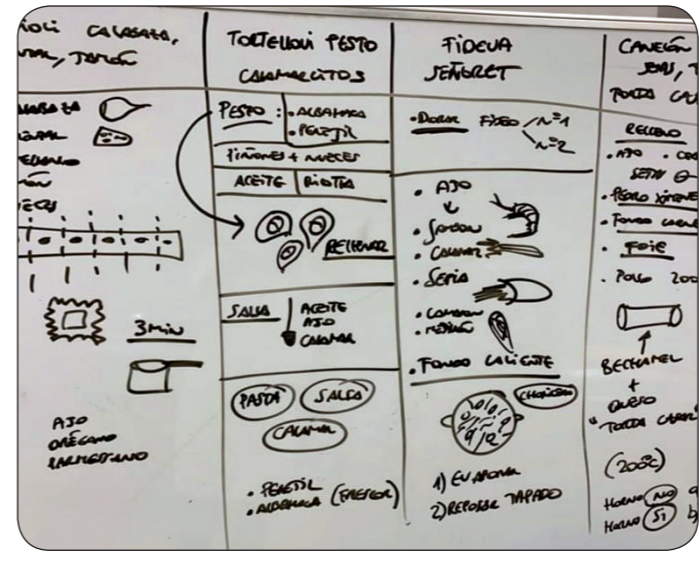 CALABAZA,
JAMÓN
3 MIN
AJO
ORÉGANO
PARMESANO
TORTELLONI PESTO
CALAMARCITOS
PESTO : • ALBAHACA
• PEREJIL
PIÑONES + NUECES
ACEITE RICOTTA
RELLENAR
SALSA ACEITE
AJO
CALAMAR
PASTA SALSA
CALAMAR
• PEREJIL
• ALBAHACA (FRESCOR)
FIDEUA
SEÑORET
• DORAR FIDEO Nº1
Nº2
• AJO
• CALAMAR
• SEPIA
• FONDO CALIENTE
1) EVAPORAR
2) REPOSAR TAPADO
CANELÓN
TORTA
RELLENO
• AJO
• PEDRO XIMENEZ
• FONDO
• FOIE
• POLLO 200
BECHAMEL
+
QUESO
(200ºC)
HORNO NO
HORNO SI